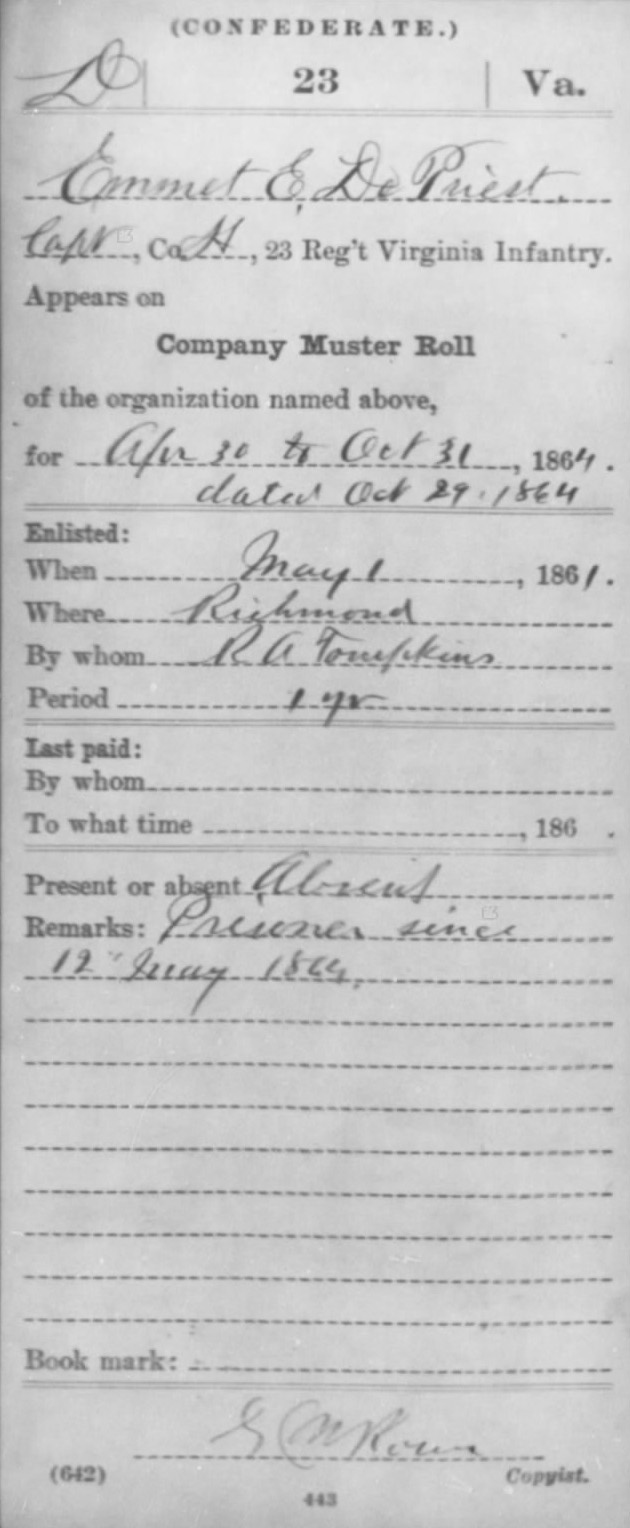 (CONFEDERATE.)
D | 23 | Va.
Emmet E. De Priest.
Capt, Co. H, 23 Reg't Virginia Infantry.
Appears on
Company Muster Roll
of the organization named above,
for Apr 30 to Oct 31, 1864.
dated Oct 29, 1864
Enlisted:
When May 1, 1861.
Where Richmond
By whom R A Tompkins
Period 1 yr
Last paid:
By whom
To what time , 186 .
Present or absent Absent
Remarks: Prisoner since
12" May 1864.
Book mark:
(642) Copyist.
443